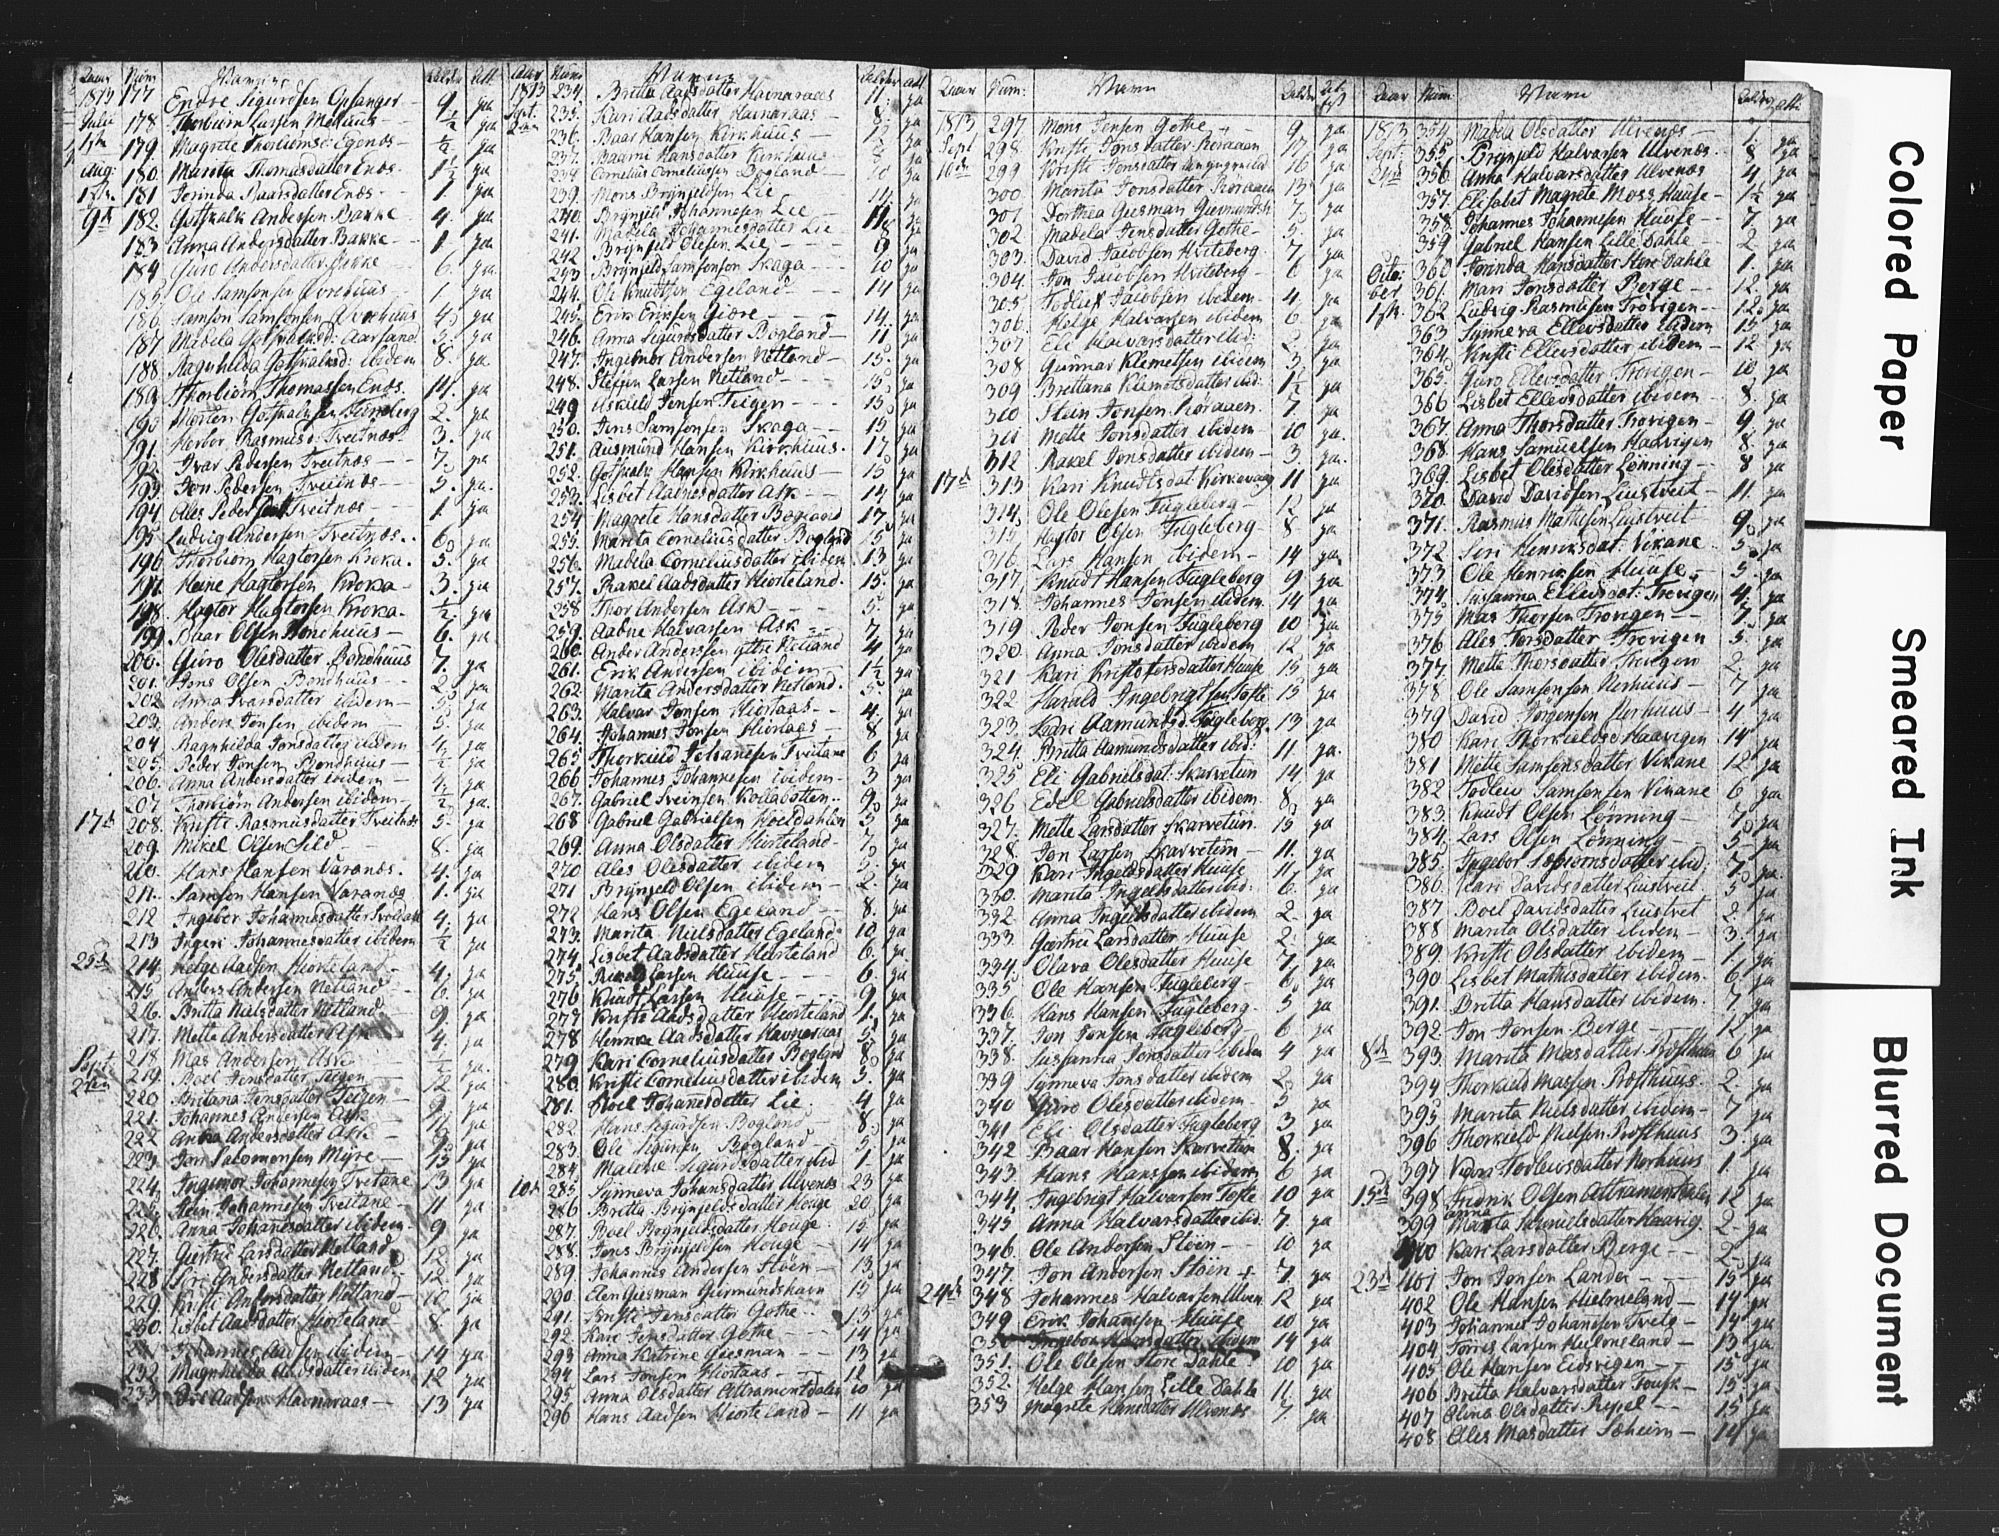 Aar Num Navne Alder Att
1813 177 Endre Sigurdsen Opsanger 9 ja
Julii 178. Thorbiørn Larsen Melhuus ½ ja
179. Magrete Enæs ½ ja
Aug: 180. Marita Thomasdatter Enæs 1½ ja
181 Jorinda Baarsdatter Enæs 1 ja
9d 182. Gotskalk Andersen Bakke 4. ja
183. Anna Andersdatter Bakke 1. ja
184 Guro Andersdatter Bakke 6. ja
185. Ole Samsonsen 1. ja
186. Samson Samsonsen 4. ja
187 Mabela Gotskalksd: Aarsand 3. ja
188. Ragnhilda Gotskalksd: ibidem 8. ja
189. Thorbiørn Thomassen Enæs. 11. ja
190. Morten Gotskalksen 2. ja
191. Herbor Rasmusd: Tveitnæs 3. ja
192. Ivar Pedersen Tveitnæs 7. ja
193. Jon Pedersen Tveitnæs 5. ja
194 Ales Peders Tveitnæs 1. ja
195. Ludvig Andersen Tveitnæs 6. ja
196 Thorbiørn Hagtorsen Kroka 5. ja
197. Heine Hagtorsen Kroka 3. ja
198. Hagtor Hagtorsen Kroka ½. ja
199. Baar Olsen Bondhuus 6. ja
200. Guro Olesdatter Bondhuus 7. ja
201. Jons Olsen Bondhuus 2. ja
202. Anna Ivarsdatter ibidem 5. ja
203. Anders Jonsen ibidem 5. ja
204 Ragnhilda Jonsdatter ibidem 4. ja
205. Peder Jonsen Bondhuus ½ ja
206. Anna Andersdatter ibidem 4. ja
207. Thorbiørn Andersen ibidem ½ ja
17d 208. Kristi Rasmusdatter Tveitnæs 5. ja
209. Mikel Olsen Sild 8. ja
210. Hans Hansen Varanæs. 4. ja
211. Samson Hansen Varanæs 1. ja
212 Ingebor Johannesdatter 4. ja
213 Ingeri Johannesdatter ibidem ½ ja
25d 214. Helge Aadsen Hiorteland 4. ja
215 Anders Andersen Netland 6. ja
216. Britta Nielsdatter Netland 9. ja
217. Mette Andersdatter Ask 4. ja
Sept. 218. Mas Andersen Ask ½ ja
2den 219. Boel Jensdatter Teigen 12 ja
220. Britana Jensdatter Teigen 9. ja
221. Johannes Andersen Ask ja
222 Anna Andersdatter Ask 9. ja
223. Jon Salomonsen Myre 15 ja
224. Ingemor Johannesen Tveitane 13 ja
225. Johannesen Tveitane 11 ja
226. Anna Johansdatter ibidem. 9 ja
227. Giertru Larsdatter Netland 12 ja
228. Siri Andersdatter Netland 12. ja
229. Kristi Andersdatter Netland 10 ja
230. Lisbet Aadsdatter Hiorteland 8. ja
231. Johannes Aadsen ibidem 14 ja
232. Magnhilda Aadsdatter ibidem 12 ja
233. Ole Aadsen Havnaraas 13 ja
Aar Num Navne Alder att
1813 234. Britta Aadsdatter Havnaraas 11. ja
Sept. 235. Kari Aadsdatter Havnaraas 8. ja
2den 236. Baar Hansen Kirkhuus 12 ja
237. Baarni Hansdatter Kirkhuus 8 ja
238 Cornelius Corneliussen Bogland 10 ja
239. Mons Brynjeldsen Lie 14 ja
240. Brynjeld Johannesen Lie 11. ja
241. Mabela Johannesdatter Lie 8 ja
242 Brynjeld Olsen Lie 9 ja
243 Brynjeld Samsonsen Skaga 10 ja
244. Ole Knudtsen Egeland 14 ja
245. Erik Eriksen Giære 14 ja
246. Anna Sigursdatter Bogland 11 ja
247. Ingemor Andersen Netland 15 ja
248. Steffen Larsen Netland 15 ja
249 Askield Jensen Teigen 15 ja
250. Jens Samsonsen Skaga 15 ja
251. Ausmund Hansen Kirkhuus. 17. ja
252. Gotskalk Hansen Kirkhuus 15 ja
253. Lisbet Aadnesdatter Ask 14 ja
254 Maggrete Hansdatter Bogland 17. ja
255. Marita Corneliusdatter Bogland 15 ja
256. Mabela Corneliusdatter ibidem. 13 ja
257. Rakel Aadsdatter Hiorteland. 15. ja
258 Thor Andersen Ask 5. ja
259. Aadne Halvarsen Ask 7 ja
260. Ander Andersen yttre Netland 4 ja
261. Erik Andersen ibidem 1½ ja
262. Marita Andersdatter Netland. 5. ja
263. Halvar Jonsen Hiortaas 4. ja
264. Johannes Jonsen Hiortaas 8 ja
265 Thorkield Johannesen Tveitane 6 ja
266 Johannes Johannesen ibidem 3 ja
267. Gabriel Sveinsen Kollabotten 9 ja
268 Gabriel Gabrielsen Hoeldahlen 5 ja
269. Anna Olsdatter Hiorteland 7 ja
270 Ales Olesdatter ibidem 5. ja
271 Brynjeld Olsen ibidem 2. ja
272 Hans Olsen Egeland 8. ja
273. Marita Nielsdatter Egeland 10 ja
274 Lisbet Aadsdatter Hiorteland 6. ja
275. Larsen Huuse 6. ja
276 Knudt Larsen Huuse 9 ja
277 Kristi Aadsdatter Hiorteland 1. ja
278 Henrike Aadsdatter Havneraas 5. ja
279 Kari Corneliusdatter Bogland 8. ja
280. Kristi Corneliusdatter ibidem 5. ja
281. Boel Johanesdatter Lie 4 ja
282 Hans Sigurdsen Bogland 8. ja
283. Ole Sigursen Bogland 5. ja
284 Malene Sigurdsdatter ibid 1. ja
10d 285. Synneva Johansdatter Ulvenes 23 ja
286 Britta Brynjeldsdatter Houge 20 ja
287. Boel Brynjeldsdatter Houge 15 ja
288. Jens Brynjeldsen Houge 14 ja
289. Johannes Andersen Støen 13 ja
290 Elen Giesman Giermundshavn 15 ja
291. Kristi Jensdatter Gothe 15. ja
292 Kari Jensdatter Gothe 14 ja
293 Anna Katrine Giesman 13 ja
294 Lars Jonsen Hiortaas 12 ja
295 Anna Olsdatter Attramentdalen 10 ja
296 Hans Aadsen Hiorteland 11 ja
Aar Num: Navn Alder Att
1813 297. Mons Jensen Gothe 9 ja
Sept 298. Kristi Jonsdatter Røraaen ja
10de 299 Kristi Jonsdatter 16 ja
300 Marita Jonsdatter Røraaen 13 ja
301 Dorthea Giesman Giermundsh. 7. ja
302 Madela Jensdatter Gothe 5. ja
303. David Jacobsen Hviteberg 7 ja
304. Jon Jacobsen Hviteberg 6 ja
305. Todleif Jacobsen ibidem 4. ja
306. Helge Halvarsen ibidem 6 ja
307 Eli Halvarsdatter ibid: 2. ja
308 Gunnar Klemetsen ibidem 3 ja
309 Brettana Klemetsdatter ibid: 1½ ja
310 Stein Jonsen Røraaen. 7. ja
311 Mette Jonsdatter ibidem 10 ja
312 Rakel Jonsdatter ibidem 3 ja
17d 313 Kari Knudtsdat: Kirkevaag 11 ja
314. Ole Olsen Fugleberg 12 ja
315. Hagtor Olsen Fugleberg 8 ja
316. Lars Hansen ibidem 14 ja
317 Knudt Hansen Fugleberg 9 ja
318. Johannes Jonsen ibidem 14 ja
319 Peder Jonsen Fugleberg 10 ja
320. Anna Jonsdatter ibidem 12 ja
321 Kari Kristofersdatter Huuse 15 ja
322 Harald Ingebrigtsen Tofte 15 ja
323. Kari Aamundsd. Fugleberg. 13 ja
324. Britta Aamundsdatter ibid: 11 ja
325 Eli Gabrielsdat. Skarvetun 14 ja
326 Edel Gabrielsdatter ibidem 8 ja
327. Mette Larsdatter Skarvetun. 15 ja
328. Jon Larsen Skarvetun 11. ja
329 Kari Ingeldsdatter Huuse 11 ja
330. Marita Ingeldsdatter ibid: 6. ja
332. Anna Ingeldsdatter ibidem 2. ja
333. Giertrue Larsdatter Huuse 2. ja
334. Olava Olesdatter Huuse 7 ja
335. Ole Hansen Fugleberg 6. ja
336. Hans Hansen Fugleberg 5 ja
337. Jon Jonsen Fugleberg 6 ja
338. Susanna Jonsdatter ibidem 4 ja
339 Synneva Jonsdatter ibidem 2 ja
340 Guro Olesdatter ibidem 5 ja
341 Eli Olsdatter Fugleberg 3 ja
342 Baar Hansen Skarvetun 8. ja
343. Hans Hanssen ibidem 6 ja
344. Ingebrigt Halvarsen Tofte 10 ja
345 Anna Halvarsdatter ibid: 7. ja
346. Ole Andersen Støen 10 ja
347. Jon Andersen Støen 7 ja
24de 348 Johannes Halvarsen 12 ja
349 Erik Johansen Huuse 10 ja
350 Ingebor Hansdatter ibidem 14 ja
351. Ole Olesen Store Dahle 10 ja
352. Helge Hansen Lille Dahle 11. ja
353. Magrete Hansdatter Ulvenes 7 ja
Aar Num: Navn Alder att.
1813 354. Mabela Olsdatter Ulvenæs 1. ja
Sept. 355 Brynjeld Halvarsen Ulvenæs 8 ja
24de 356 Anna Halvarsdatter Ulvenæs 4 ja
357. Elisabet Magrete Moss Huuse 1½ ja
358. Johannes Johannesen Huuse 7. ja
359 Gabriel Hansen Lille Dahle 2. ja
Octo: 360 Jorinda Hansdatter Store Dahle 1. ja
ber 361. Mari Jonsdatter Berge 12. ja
1ste. 362 Ludvig Rasmusen Trovigen 12. ja
363. Synneva Ellevsdatter ibidem 15 ja
364 Kristi Ellevsdatter ibidem 12 ja
365. Guro Ellevsdatter Trevigen 10 ja
366 Lisbet Ellevsdatter ibidem 8. ja
367. Anna Thorsdatter Trovigen 9. ja
368. Hans Samuelsen Haavigen 8. ja
369. Lisbet Olesdatter Lønning 8 ja
370. David Davidsen Liustveit 11. ja
371. Rasmus Mathisen Liustveit 9 ja
372 Siri Henriksdat: Vikane 5. ja
373 Ole Henriksen Huuse 5. ja
374 Susanna Ellevsdat: Trevigen 4. ja
375 Mas Thorsen Trovigen 7. ja
376 Ales Torsdatter Trevigen 5. ja
377. Mette Thorsdatter Trevigen 2. ja
378. Ole Samsonsen Nerhuus 7 ja
379 David Jørgensen Nerhuus 4 ja
380 Kari Thorkieldsd Haavigen 14 ja
381 Mette Samsonsdatter Vikane 12 ja
382 Todleiv Samsonsen Vikane 6 ja
383 Knudt Olsen Lønning 7. ja
384. Lars Olsen Lønning 5. ja
385. Ingebor ibid: 7. ja
386. Kari Davidsdatter Liustveit 5 ja
387. Boel Davidsdatter Liustvet 2. ja
388 Marita Olsdatter ibidem 3. ja
389. Kristi Olsdatter ibidem 1 ja
390 Lisbet Mathisdatter ibidem. 6 ja
391. Britta Hansdatter ibidem. 7. ja
392. Jon Jonsen Berge 12 ja
8de 393. Marita Masdatter 6 ja
394 Thorkield Massen Røsthuus. 2. ja
395. Marita Nielsdatter ibidem 7 ja
396 Thorkield Nielsen Røsthuus 3. ja
397 Kari Todleivsdatter Nerhuus 1. ja
15d 398 Fredrik Olsen Attramentdalen 12 ja
anna
399 Marita Samuelsdatter Haavig. 2. ja
400 Kari Larsdatter Berge 2. ja
23d 401 Jon Jonsen Landa 15 ja
402 Ole Hansen Hielmeland 14 ja
403 Johannes Johansen Tvete 14 ja
404 Torris Larsen Hielmeland 13 ja
405 Ole Hansen Eidsvigen 15 ja
406 Britta Halvarsdatter Fousk 15 ja
407. Elina Olsdatter Regel 15 ja
408 Alles Masdatter Soheim 14 ja
Colored Paper
Smeared Ink
Blurred Document